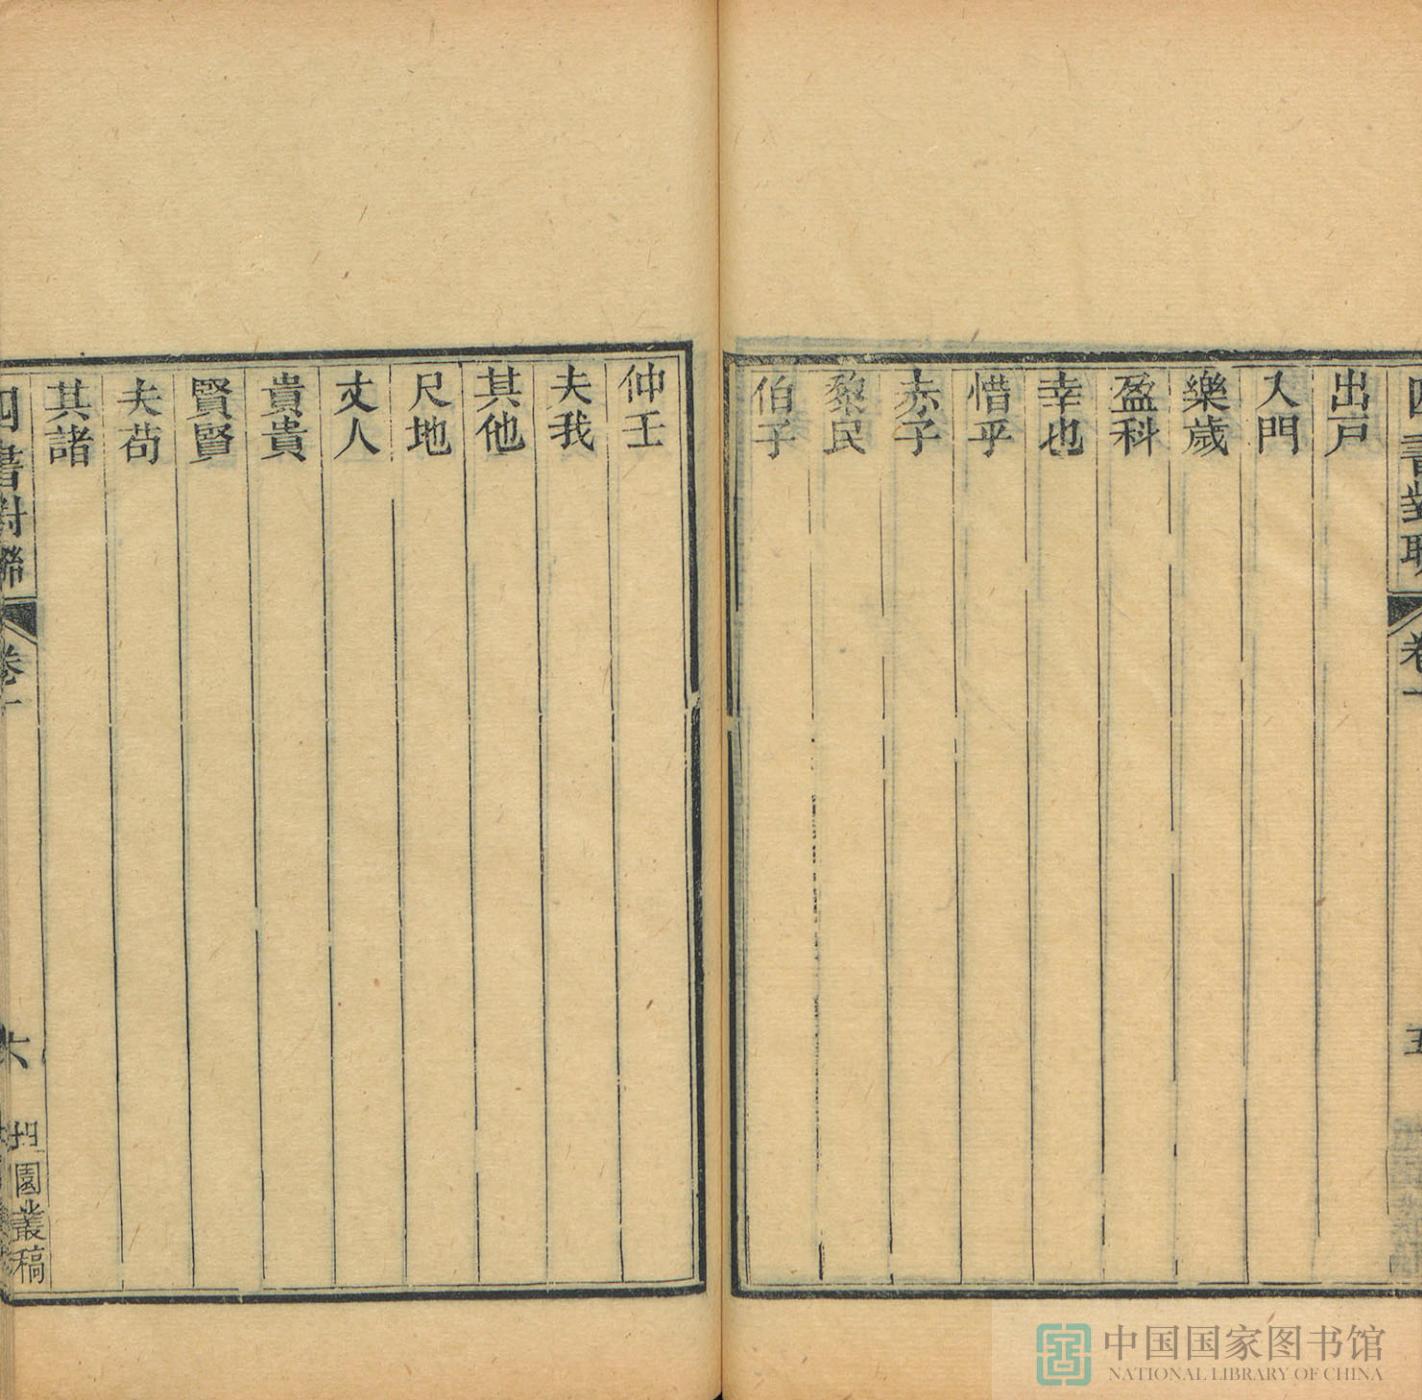 四書對聯 卷一 五
出戸
入門
樂歲
盈科
幸也
惜乎
赤子
黎民
伯子
仲壬
夫我
其他
尺地
丈人
貴貴
賢賢
夫苟
其諸
四書對聯 卷一 六 園叢稿
中国国家图书馆
NATIONAL LIBRARY OF CHINA